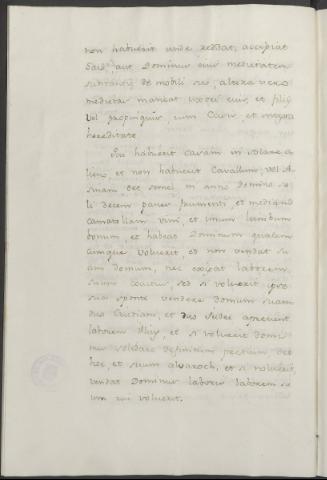 non habuerit unde reddat, accipiat
Said, aut Dominus eius medietatem
de mobili suo, altera vero
medietas maneat uxori eius, et filijs
vel propinquis cum Casis, et integra
hereditate.
Qui habuerit casam in solare a
lieno, et non habuerit Cavallum, vel A-
sinum, det semel in anno domino so-
li decem panes frumenti, et mediam
canatellam vini, et unum lumbum
bonum, et habeat Dominum qualem
cumque voluerit, et non vendat su
am domum, nec exigat laborem
suum coactus, sed si voluerit ipse
sua sponte vendere domum suam
duo Christiani, et duo Judei aprecient
laborem illius, et si voluerit domi
nus solidare definitum pretium, det
hec, et suum alvaroch, et si noluerit,
vendat Dominus laboris laborem su
um cui voluerit.